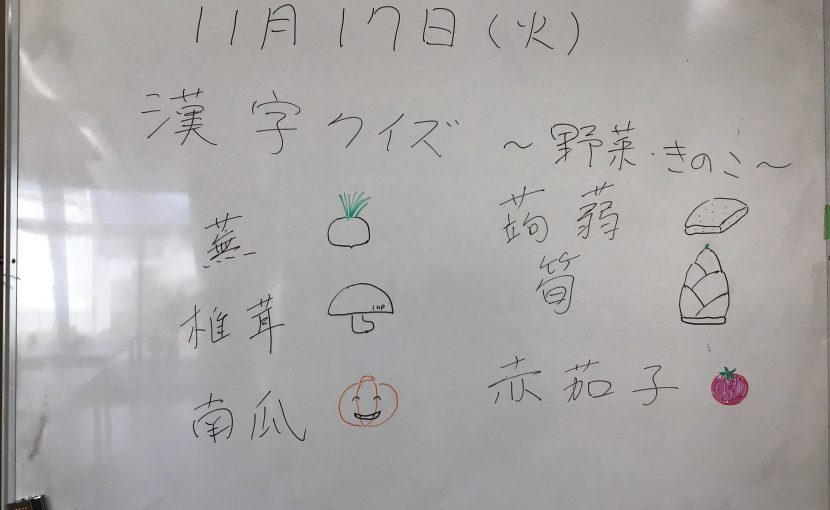 11月17日(火)
漢字クイズ ～野菜・きのこ～
蕪
椎茸
1UP
南瓜
蒟蒻
筍
赤茄子